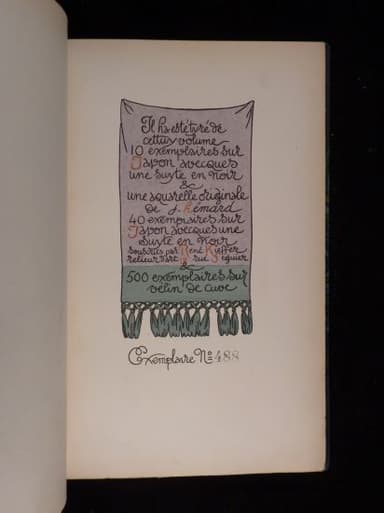 Il ha esté tyré de
cettuy volume
10 exemplaires sur
Japon avecques
une suyte en noir
&
une aquarelle originale
de J. Hémard
40 exemplaires sur
Japon avecques une
suyte en noir
souscris par René Kieffer
relieur d'art rue Séguier
&
500 exemplaires sur
vélin de cuve
Exemplaire No 488